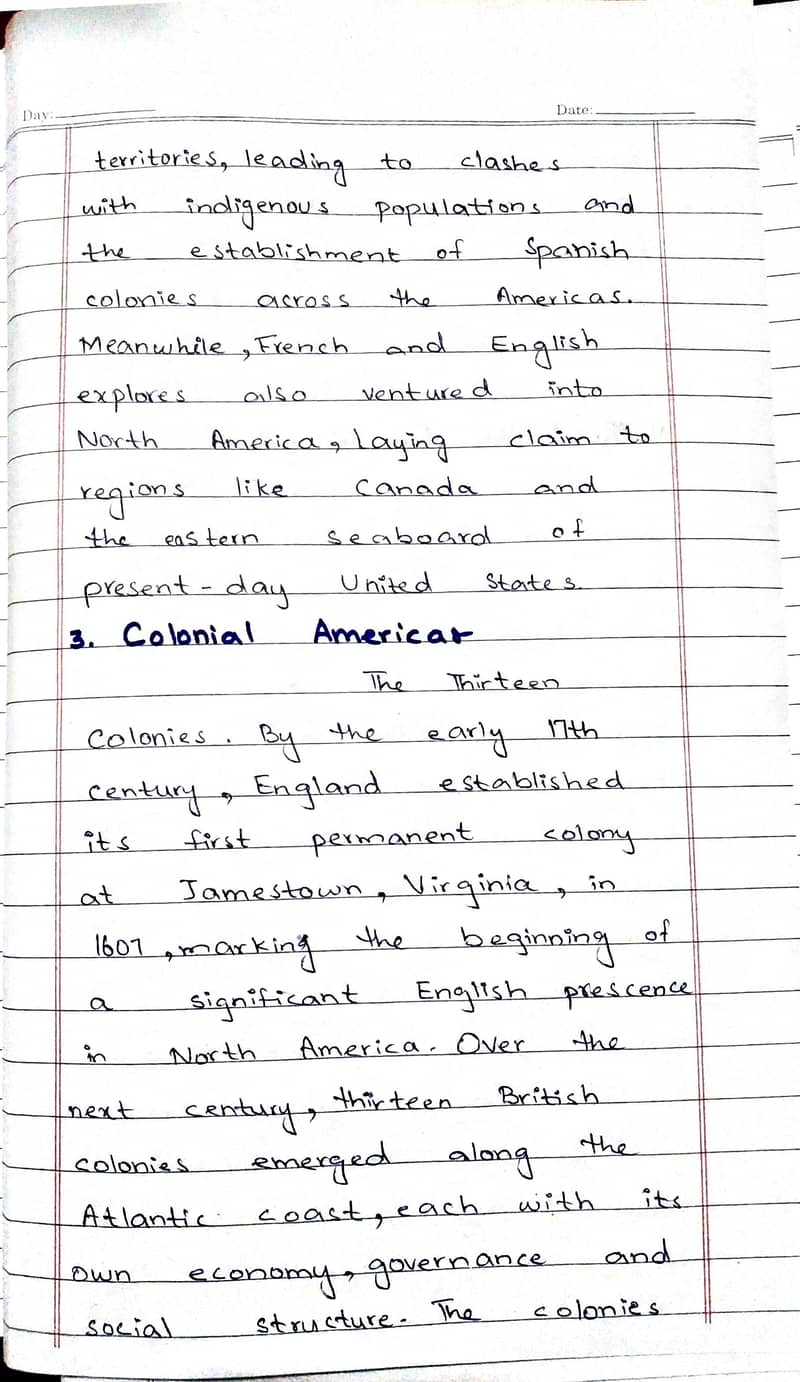 Day:
Date:
territories, leading to clashes
with indigenous populations and
the establishment of Spanish
colonies across the Americas.
Meanwhile, French and English
explores also ventured into
North America, Laying claim to
regions like Canada and
the eastern seaboard of
present-day United States
3. Colonial Americar
The Thirteen
Colonies. By the early 17th
century, England established
its first permanent colony
at Jamestown, Virginia, in
1607, marking the beginning of
a significant English prescence
in North America. Over the
next century, thirteen British
colonies emerged along the
Atlantic coast, each with its
own economy, governance and
social structure. The colonies